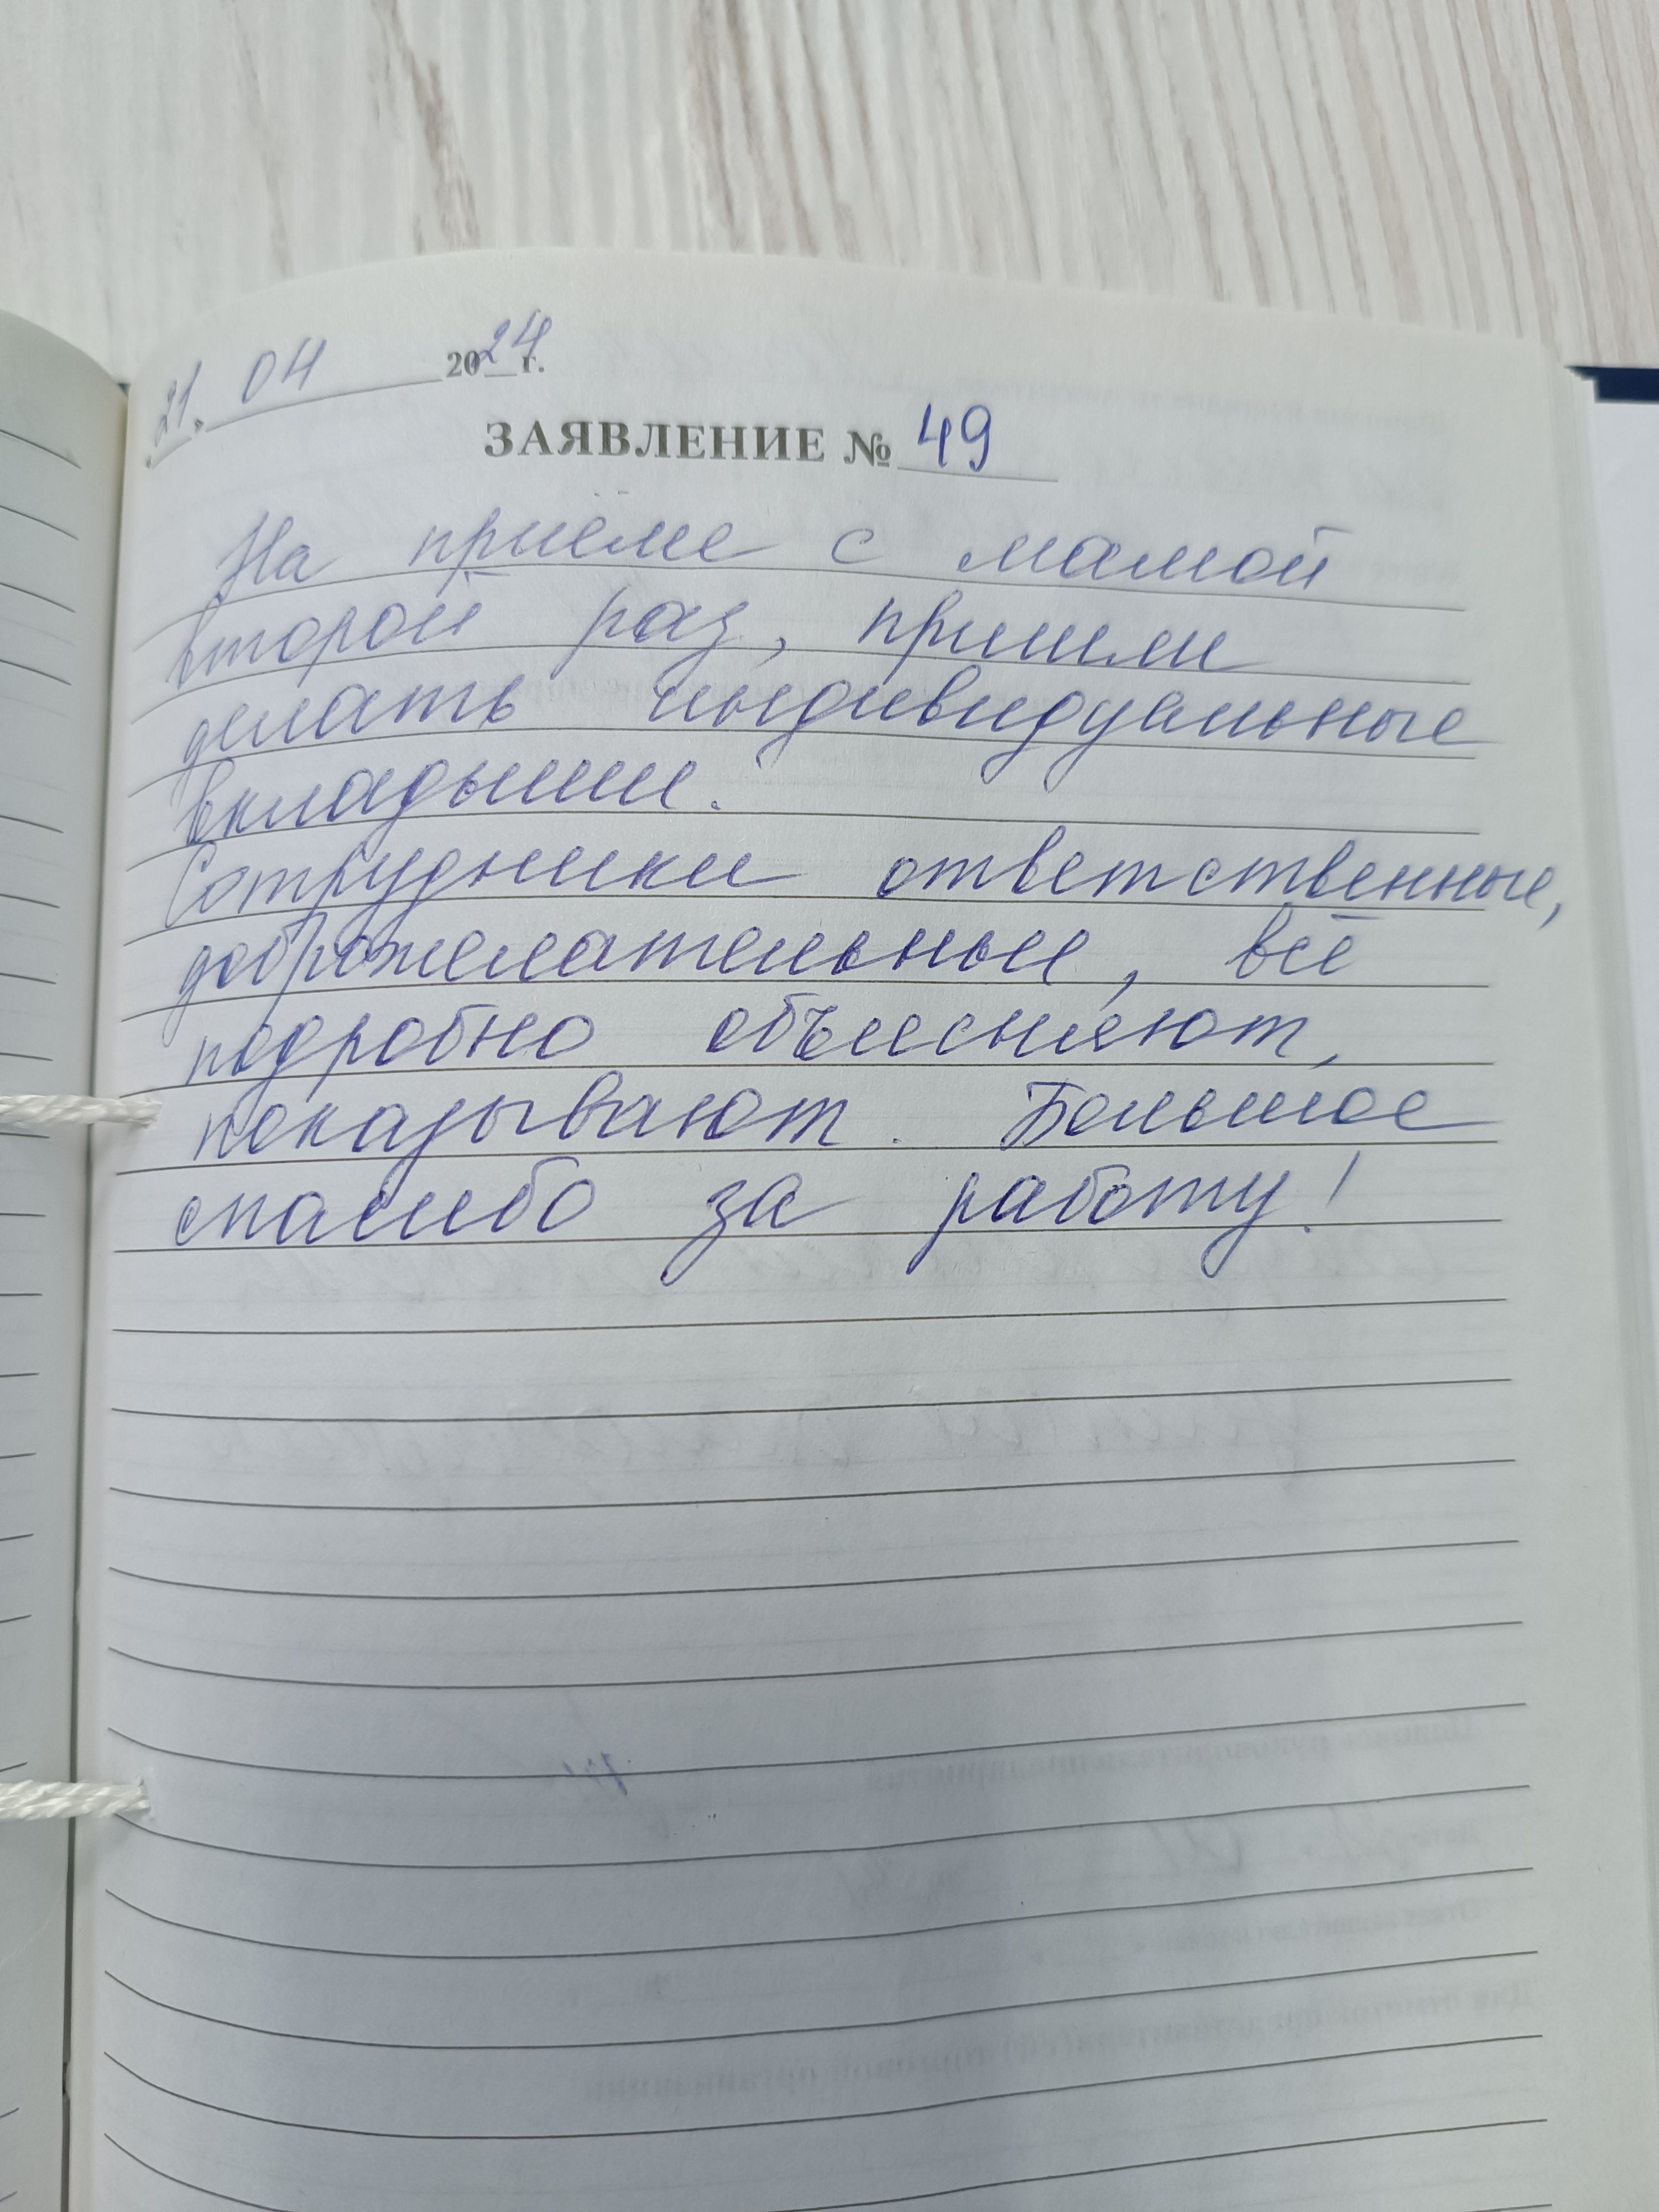 21. 04 2024 г.
ЗАЯВЛЕНИЕ № 49
На приёме с мамой
второй раз, пришли
делать индивидуальные
вкладыши.
Сотрудники ответственные,
доброжелательные, всё
подробно объясняют,
показывают. Большое
спасибо за работу!